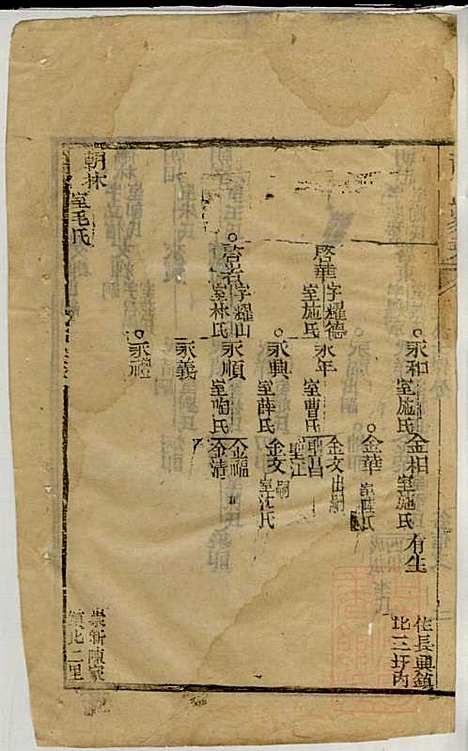 永和室施氏
金相室施氏
有生
住長興鎮
北三圩內
金華
啓華字耀德
室施氏
永年室曹氏
金文出嗣
聖昌
永興室薛氏
聖江
金文嗣
室沈氏
字耀山
室林氏
永順室陶氏
金福
金清
永義
永禮
朝林室毛氏
崇新陳家
鎮北二里